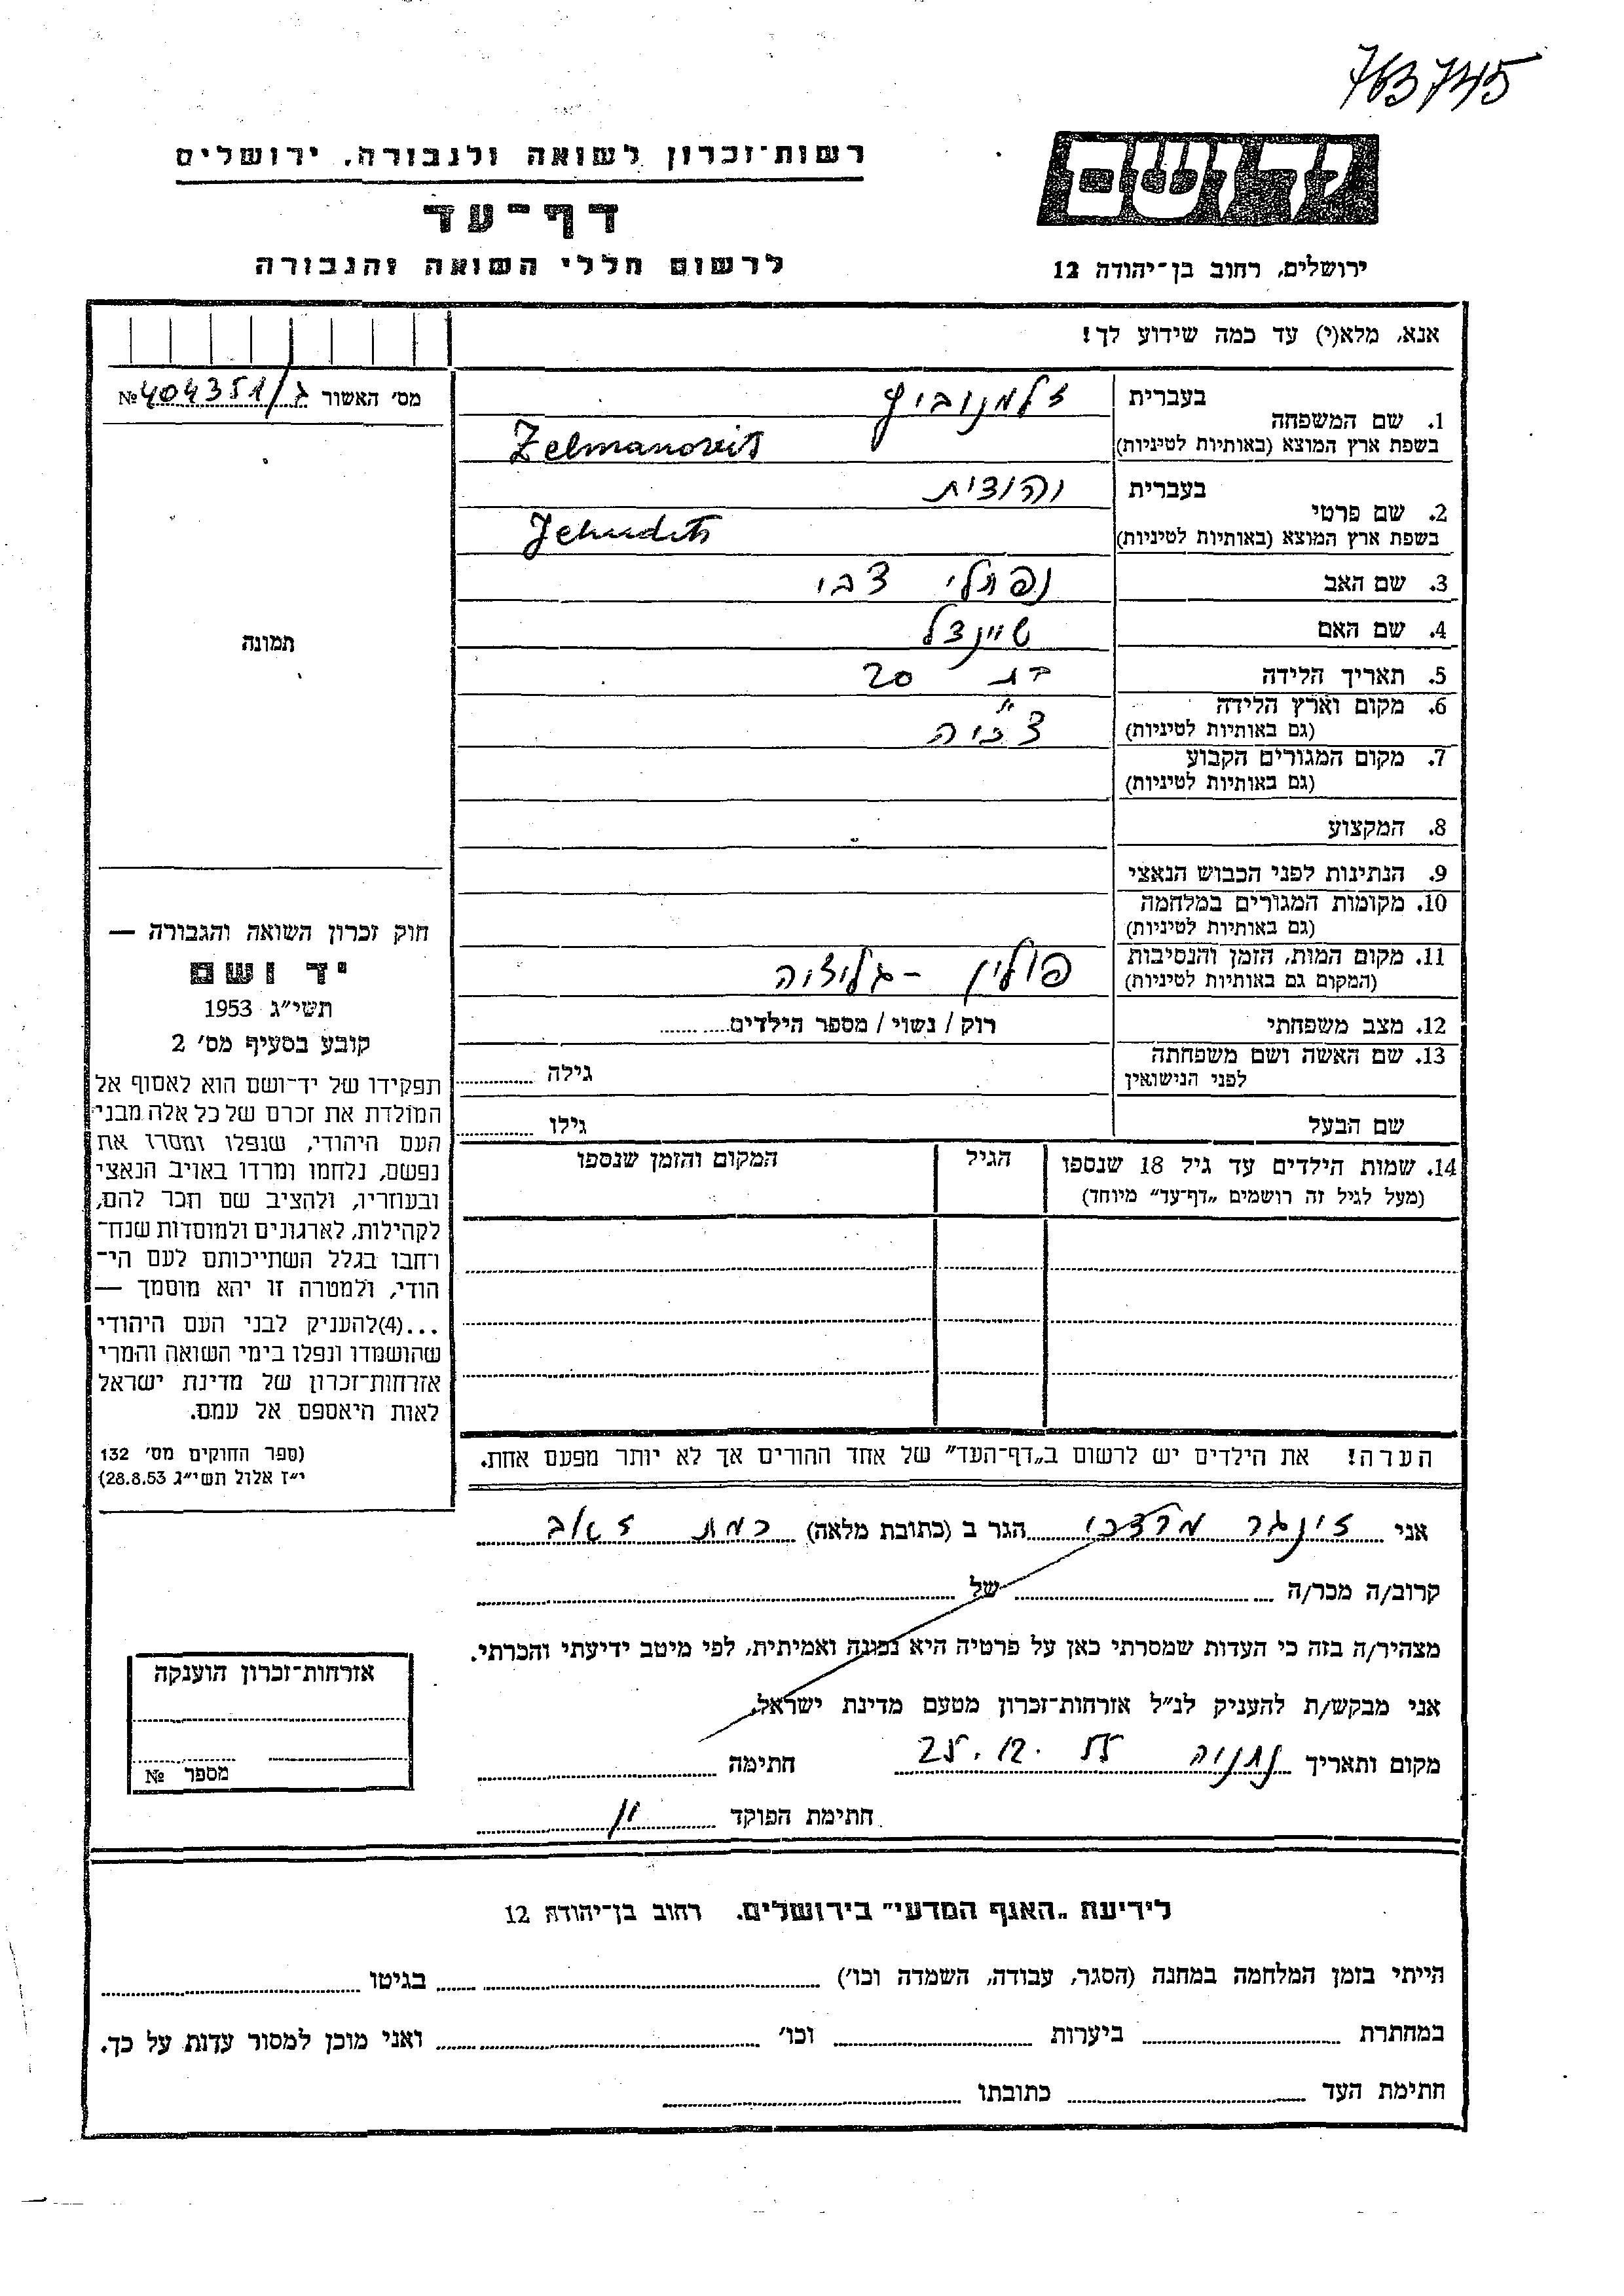 763745
רשות־זכרון לשואה ולגבורה, ירושלים
דף־עד
לרשום חללי השואה והגבורה
יד ושם
ירושלים, רחוב בן־יהודה 12
אנא, מלא(י) עד כמה שידוע לך!
מס׳ האשור ג/404351 №
תמונה
1. שם המשפחה
בעברית זלמנוביץ
בשפת ארץ המוצא (באותיות לטיניות) Zelmanovits
2. שם פרטי
בעברית יהודית
בשפת ארץ המוצא (באותיות לטיניות) Jehudith
3. שם האב נפתלי צבי
4. שם האם שיינדל
5. תאריך הלידה בת 20
6. מקום וארץ הלידה
(גם באותיות לטיניות)
7. מקום המגורים הקבוע
(גם באותיות לטיניות)
8. המקצוע
9. הנתינות לפני הכבוש הנאצי
10. מקומות המגורים במלחמה
(גם באותיות לטיניות)
11. מקום המות, הזמן והנסיבות פולין - גליציה
(המקום גם באותיות לטיניות)
12. מצב משפחתי רוק / נשוי / מספר הילדים
13. שם האשה ושם משפחתה גילה
לפני הנישואין
שם הבעל גילו
14. שמות הילדים עד גיל 18 שנספו הגיל המקום והזמן שנספו
(מעל לגיל זה רושמים „דף־עד״ מיוחד)
הערה! את הילדים יש לרשום ב„דף־העד״ של אחד ההורים אך לא יותר מפעם אחת.
חוק זכרון השואה והגבורה —
יד ושם
תשי״ג 1953
קובע בסעיף מס׳ 2
תפקידו של יד־ושם הוא לאסוף אל
המולדת את זכרם של כל אלה מבני
העם היהודי, שנפלו ומסרו את
נפשם, נלחמו ומרדו באויב הנאצי
ובעוזריו, ולהציב שם וזכר להם,
לקהילות, לארגונים ולמוסדות שנח־
רחבו בגלל השתייכותם לעם הי־
הודי, ולמטרה זו יהא מוסמך —
...(4)להעניק לבני העם היהודי
שהושמדו ונפלו בימי השואה והמרי
אזרחות־זכרון של מדינת ישראל
לאות היאספם אל עמם.
(ספר החוקים מס׳ 132
י״ז אלול תשי״ג 28.8.53)
אני זינגר מרדכי הגר ב (כתובת מלאה) רמת זאב
קרוב/ה מכר/ה של
מצהיר/ה בזה כי העדות שמסרתי כאן על פרטיה היא נכונה ואמיתית, לפי מיטב ידיעתי והכרתי.
אני מבקש/ת להעניק לנ״ל אזרחות־זכרון מטעם מדינת ישראל.
מקום ותאריך נתניה 25.12.55 חתימה
חתימת הפוקד
אזרחות־זכרון הוענקה
מספר №
לידיעת „האגף המדעי״ בירושלים. רחוב בן־יהודה 12
הייתי בזמן המלחמה במחנה (הסגר, עבודה, השמדה וכו׳) בגיטו
במחתרת ביערות וכו׳ ואני מוכן למסור עדות על כך.
חתימת העד כתובתו